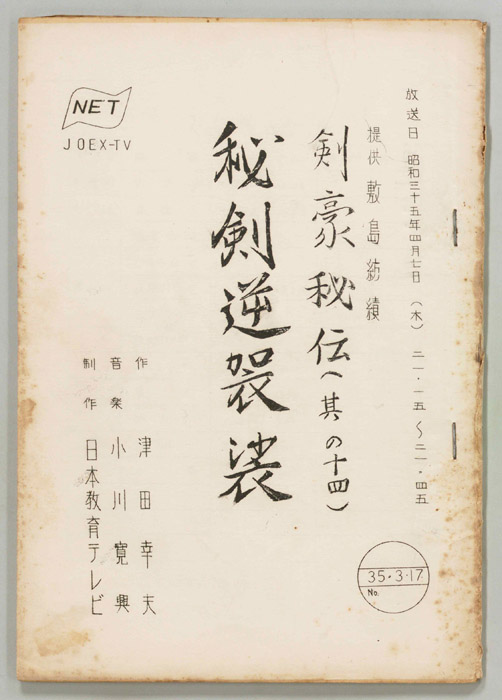 放送日 昭和三十五年四月七日 (木) 二一・一五〜二一・四五
提供 敷島紡績
剣豪秘伝(其の十四)
秘剣逆袈裟
作 津田幸夫
音楽 小川寛興
制作 日本教育テレビ
NET
JOEX-TV
35・3・17
No.